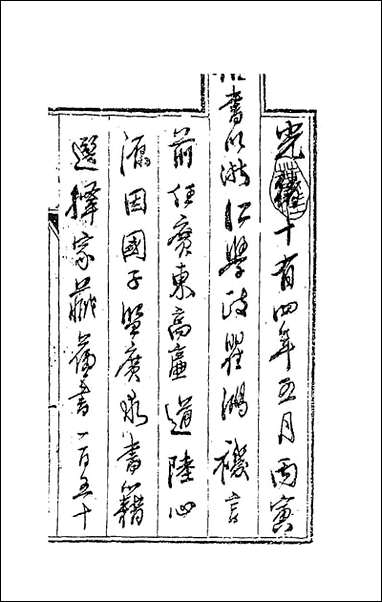 光緒十有四年五月丙寅
尚書以浙江學政瞿鴻禨言
前任廣東高廉道陸心
源因國子監廣求書籍
選擇家藏舊書一百五十